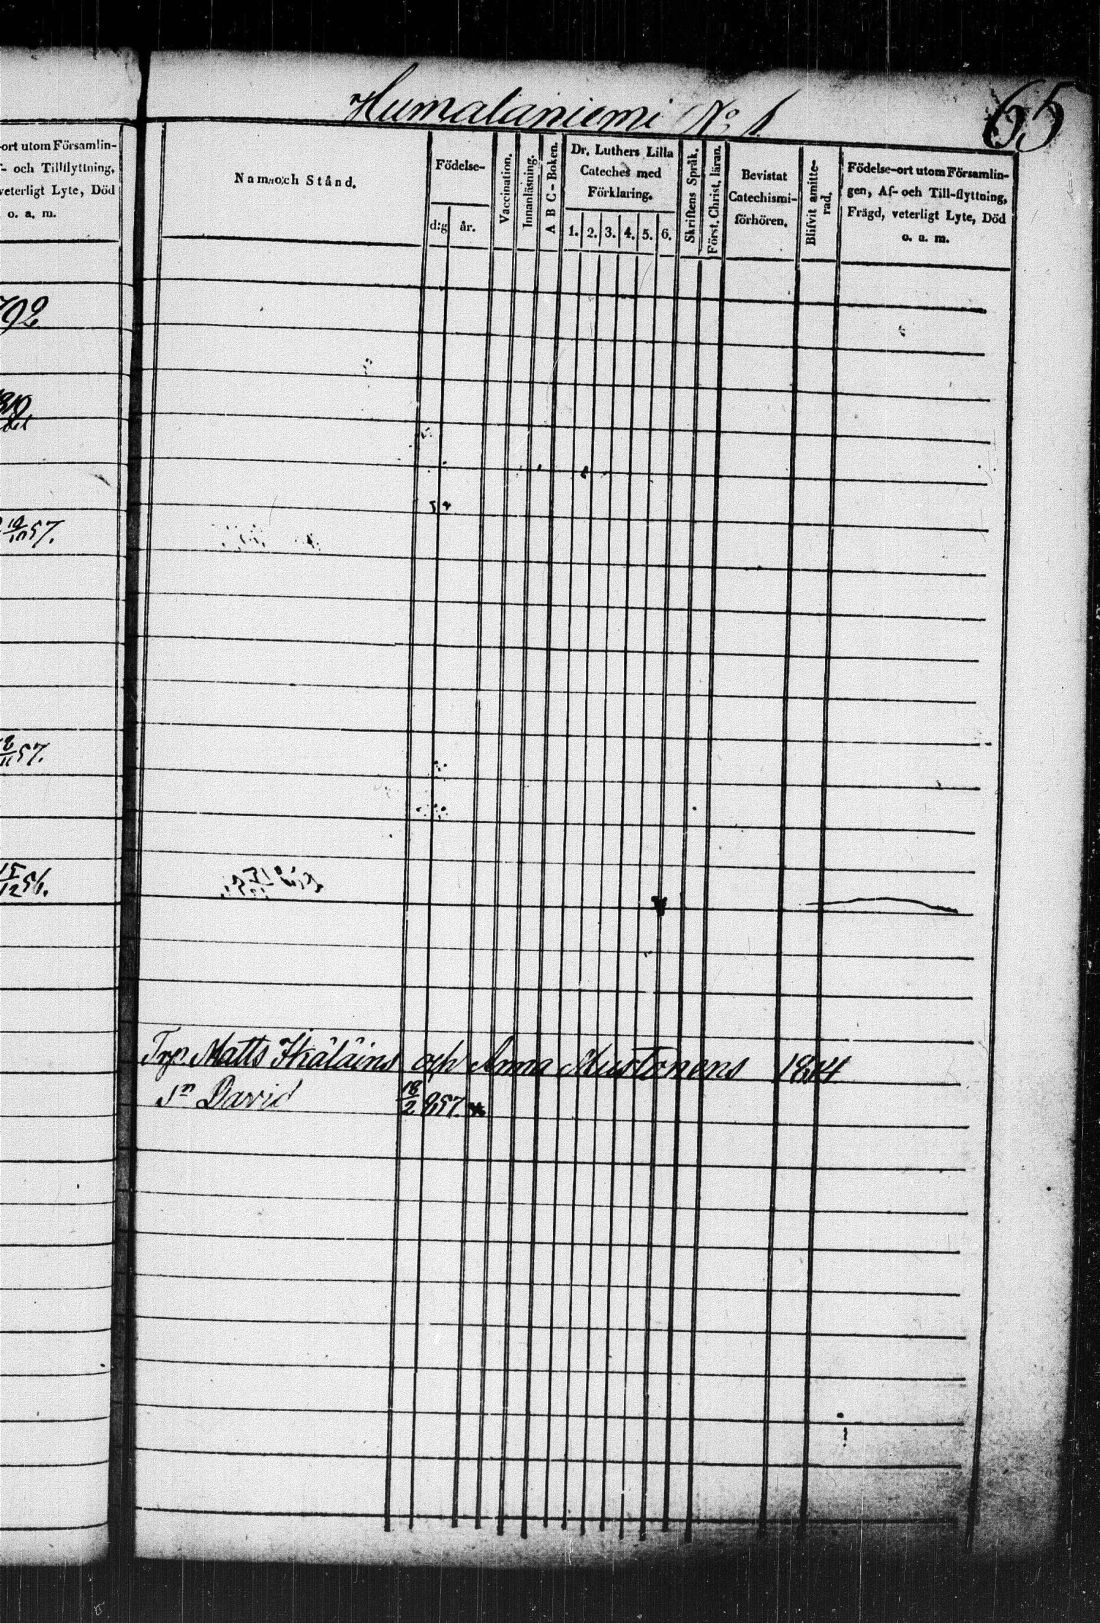 Humalaniemi No 1
65
-ort utom Församlin-
- och Tillflyttning,
veterligt Lyte, Död
o. a. m.
792
19/10 57.
57.
15/12 56.
Namn och Stånd.
Födelse-
dag
år.
Vaccination.
Innanläsning.
A B C-Boken.
Dr. Luthers Lilla
Cateches med
Förklaring.
1. 2. 3. 4. 5. 6.
Skriftens Språk.
Först. Christ. läran.
Bevistat
Catechismi-
förhören.
Blifvit amitte-
rad.
Födelse-ort utom Församlin-
gen, Af- och Till-flyttning,
Frägd, veterligt Lyte, Död
o. a. m.
Matts Ikäläins och Anna Mustonens
Sn David 18/2 57.